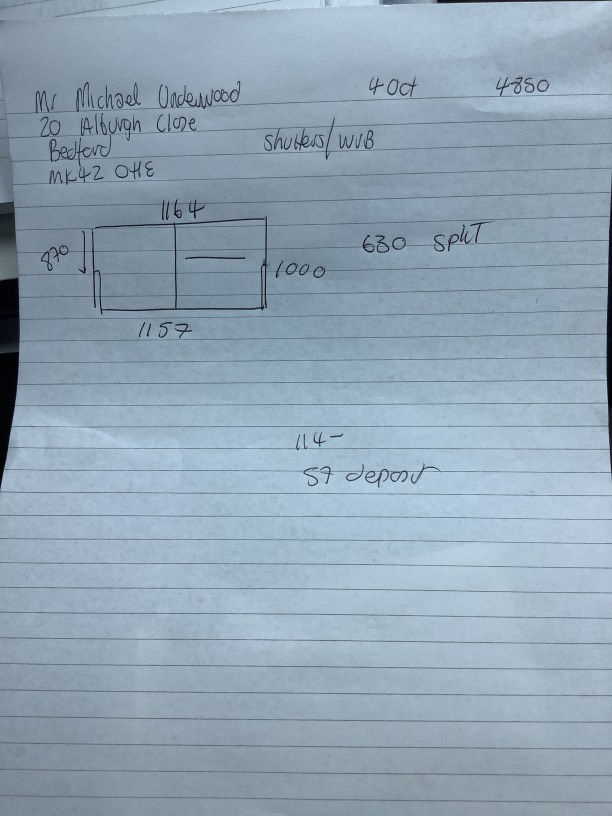 Mr Michael Underwood 4 Oct 4850
20 Alburgh Close
Bedford Shutters/WVB
MK42 0HE
1164
870 630 SPLIT
1000
1157
114-
57 deposit